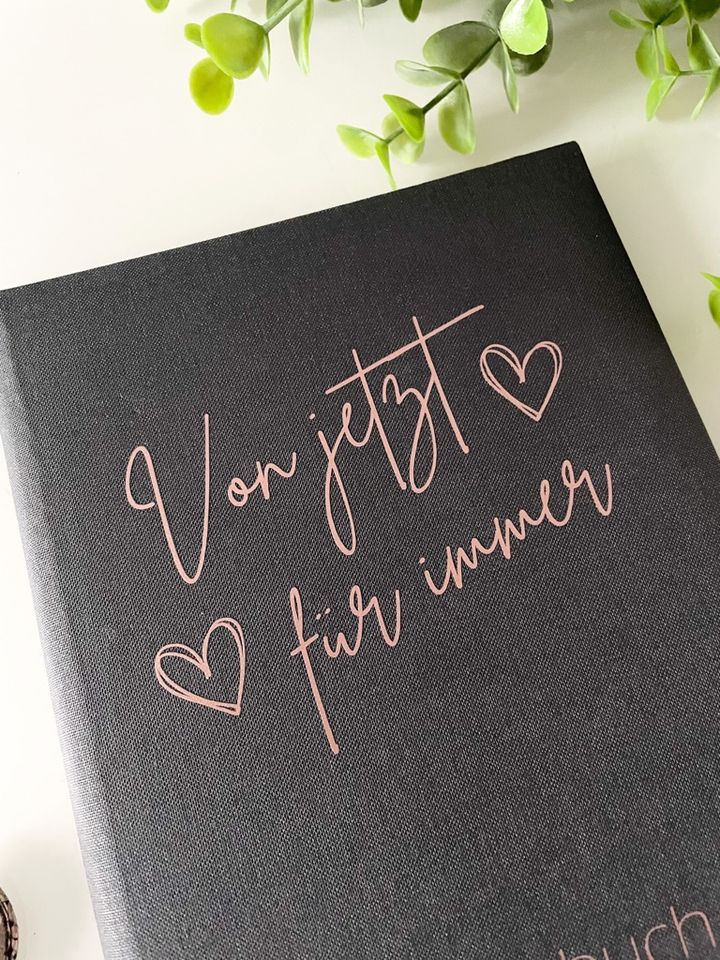 Von jetzt
für immer